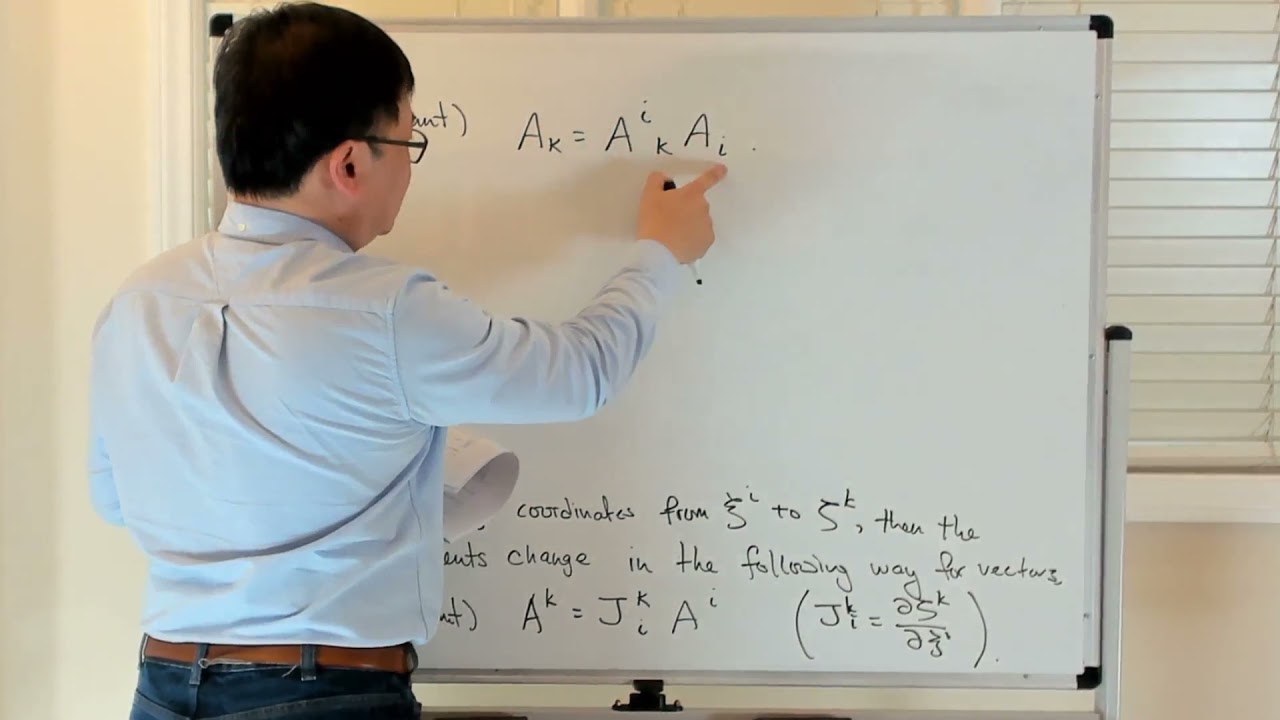 A_k = A^i_k A_i .
coordinates from ξ^i to ζ^k, then the
change in the following way for vectors,
A^k = J^k_i A^i (J^k_i = ∂ζ^k/∂ξ^i).